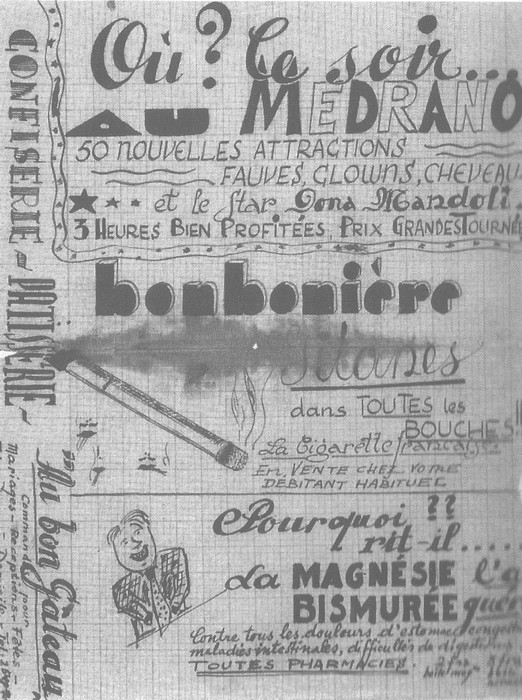 Où? Ce soir...
AU MEDRANO
50 NOUVELLES ATTRACTIONS
FAUVES, CLOWNS, CHEVEAU
et le Star Dona Mandoli
3 HEURES BIEN PROFITÉES, PRIX GRANDES TOURNÉ
bonbonière
CONFISERIE - PATISSERIE -
dans TOUTES les
BOUCHES!!
La Cigarette française
EN VENTE CHEZ VOTRE
DÉBITANT HABITUEL
Au bon Gâteau
Commandes pour
Mariages - Réceptions - Fêtes -
Pourquoi ??
rit-il.....
La MAGNÉSIE
BISMURÉE
Contre tous les douleurs d'estomac
maladies intestinales, difficultés de digestion
TOUTES PHARMACIES.